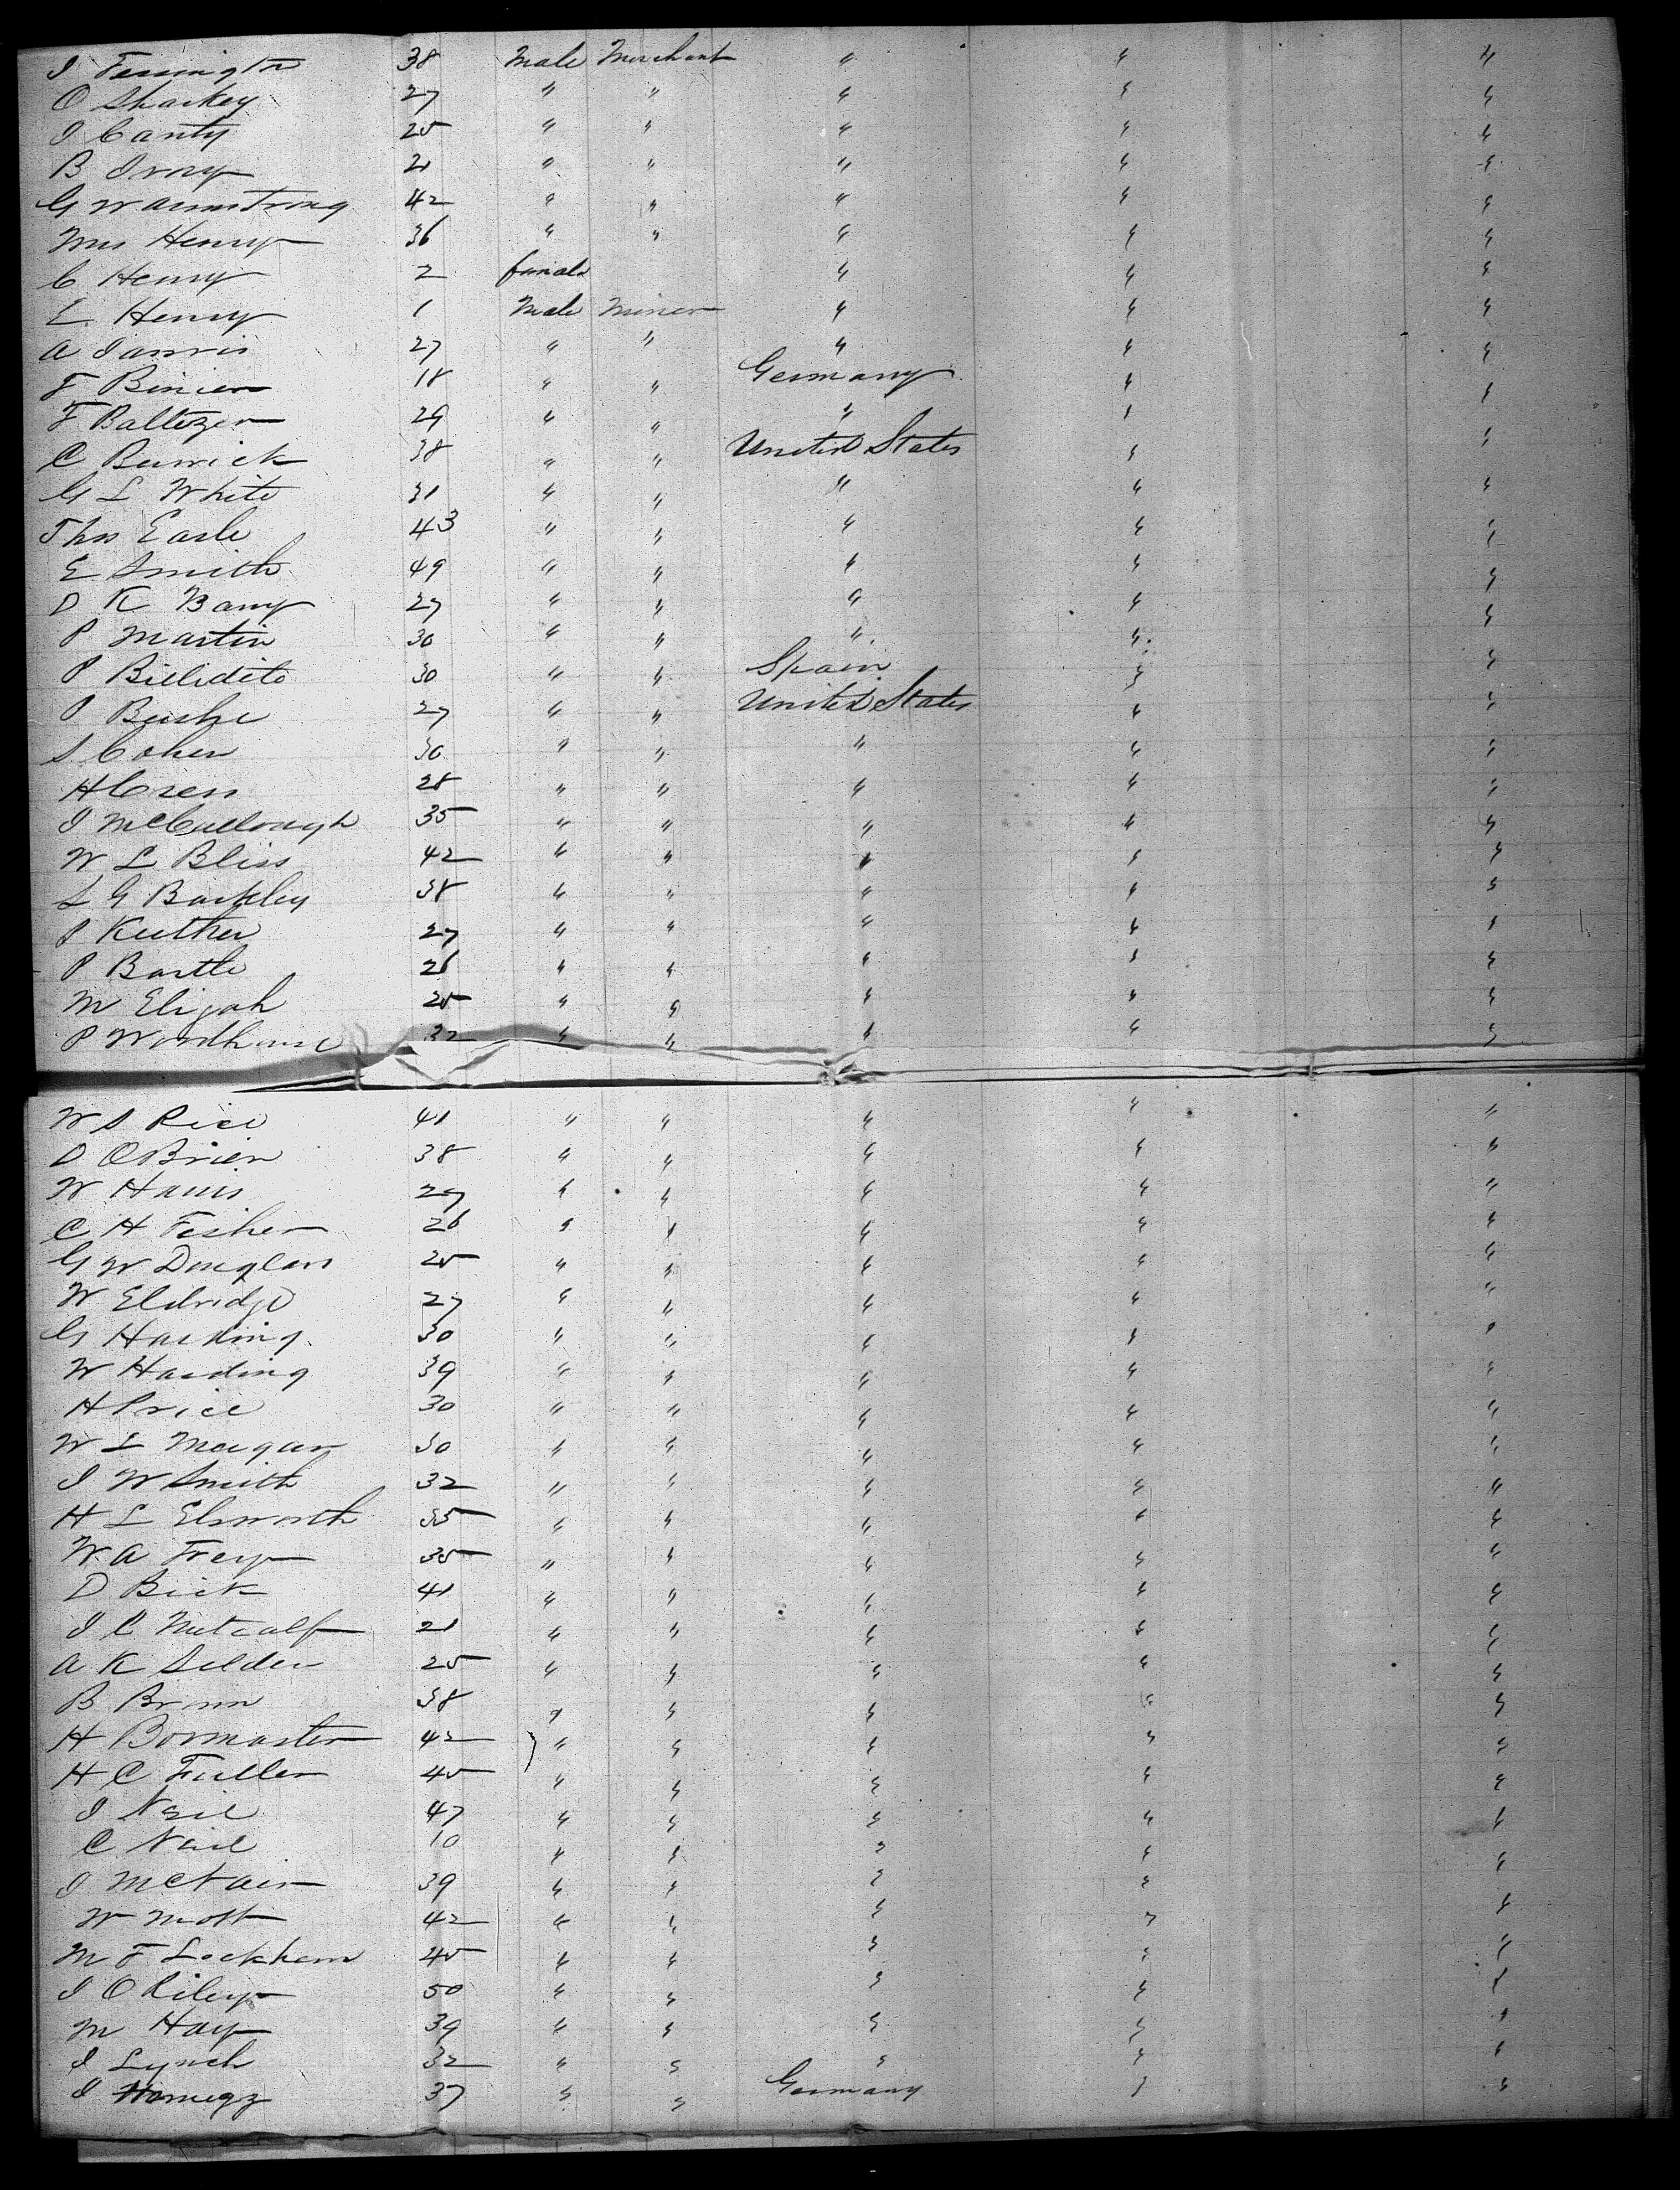 J Fessington 38 Male Merchant " " "
O Sharkey 27 " " " " "
J Canty 25 " " " " "
B Ivay 21 " " " " "
G W Armstrong 42 " " " " "
Mrs Henry 36 " " " " "
C Henry 2 female " " "
E. Henry 1 Male Miner " " "
A Jarvis 27 " " " " "
F Binier 18 " " Germany " "
F Baltezer 29 " " " " "
C Berwick 38 " " United States " "
G L White 31 " " " " "
Thos Earle 43 " " " " "
E Smith 49 " " " " "
D K Barry 27 " " " " "
P Martin 30 " " " " "
P Billidito 30 " " Spain " "
P Bushe 27 " " United States " "
S Cohen 30 " " " " "
H Cress 28 " " " " "
J McCullough 35 " " " " "
W L Bliss 42 " " " " "
L G Barkley 38 " " " " "
P Keuther 27 " " " " "
P Bartle 26 " " " " "
M Elijah 25 " " " " "
P Woodhouse 32 " " " " "
W S Rice 41 " " " " "
D OBrien 38 " " " " "
W Harris 27 " " " " "
C H Fisher 26 " " " " "
G W Douglass 25 " " " " "
W Eldridge 27 " " " " "
G Harding 30 " " " " "
W Harding 39 " " " " "
H Price 30 " " " " "
W L Morgan 30 " " " " "
J W Smith 32 " " " " "
H L Elsworth 35 " " " " "
W. A Frey 35 " " " " "
D Bick 41 " " " " "
J C Metcalf 21 " " " " "
A K Selden 25 " " " " "
B Brown 38 " " " " "
H Bowmaster 42 " " " " "
H C Fuller 45 " " " " "
J Nail 47 " " " " "
C Nail 10 " " " " "
J McNair 39 " " " " "
W Mott 42 " " " " "
M F Lockham 45 " " " " "
J O Riley 50 " " " " "
M Hay 39 " " " " "
J Lynch 32 " " " " "
J 37 " " Germany " "